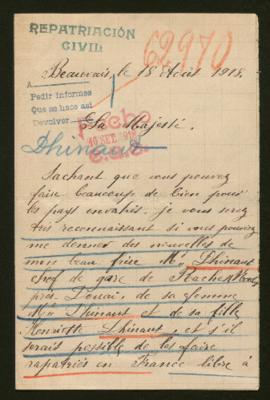 REPATRIACIÓN
CIVIL
62970
Beauvais, le 18 Août 1918.
A
Pedir informes
Que se hace así
Devolver
Sa Majesté,
10 SET. 1918
Dhinaut
Sachant que vous pouvez
faire beaucoup de bien pour
les pays envahis, je vous serai
très reconnaissant si vous pouviez
me donner des nouvelles de
mon beau frère Mr Dhinaut
chef de gare de
près Douai, de sa femme
Me Dhinaut et de sa fille
Henriette Dhinaut, et s'il
serait possible de les faire
rapatriés en France libre à